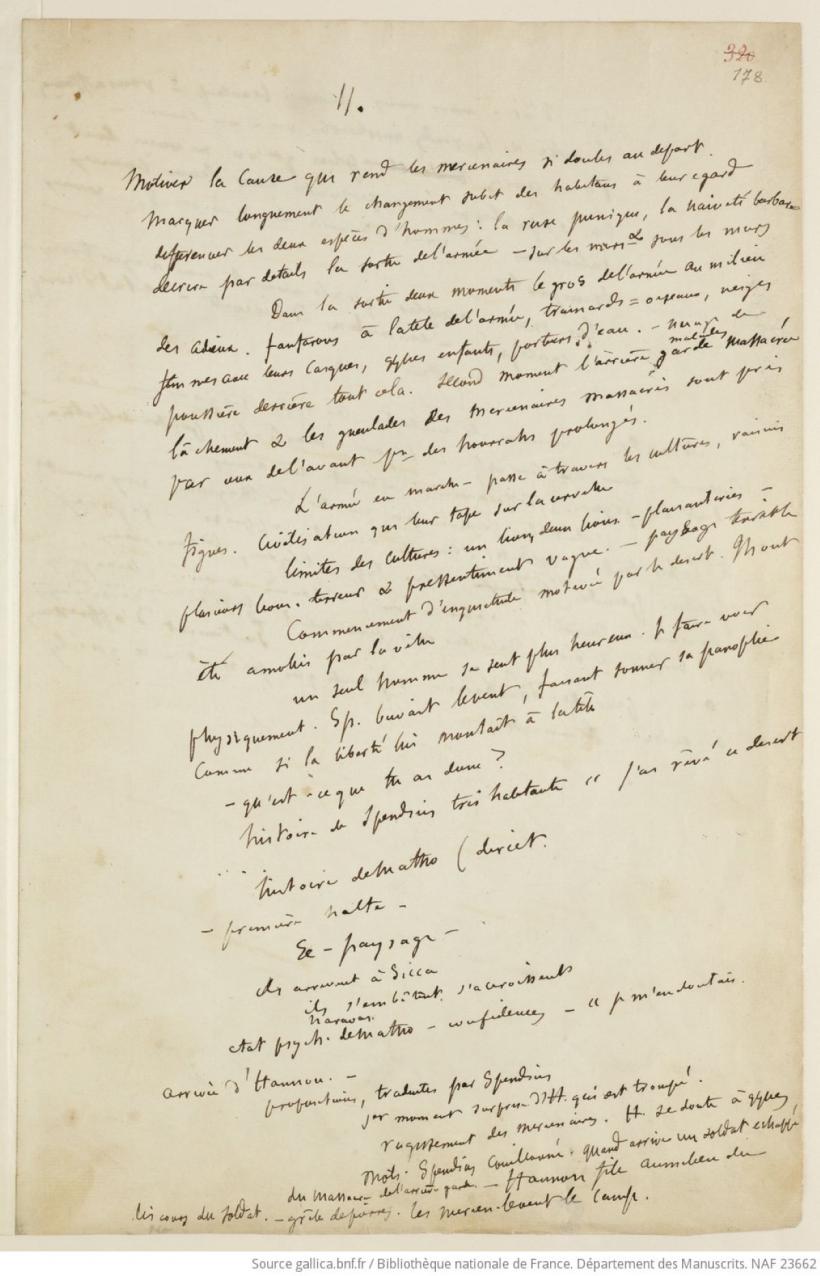 320
178
II.
Motiver la Cause qui rend les mercenaires si doubles au depart.
Marquer longuement le changement subit des habitans à leur egard
differencier les deux espèces d'hommes : la ruse punique, la naiveté barbare
decrire par details la sortie de l'armée – sur les murs & sous les murs
Dans la sortie deux moments le gros de l'armée au milieu
des adieux. fanfarons à la tete de l'armée, trainards = oiseaux, neiges
femmes avec leurs Casques, enfants, porteurs d'eau. – nuage de
poussière derrière tout cela. second moment l'arrière garde massacrée
malades
lâchement & les gueulades des mercenaires massacrés sont pris
par ceux de l'avant pr des hourrahs prolongés.
L'armée en marche – passe à travers les cultures, raisins
figues. Civilisation qui leur tape sur la cervelle
limites des cultures : un lion, deux lions – plaisanteries –
plusieurs lions. terreur & pressentiment vague. – paysage terrible
Commencement d'inquietude motivée par le desert. Ils ont
été amolis par la ville
un seul homme se sent plus heureux. le faire voir
physiquement. Sp. buvait le vent, faisant sonner sa panoplie
Comme si la liberté lui montait à la tête
– qu'est-ce que tu as donc ?
histoire de Spendius très habitante " j'ai rêvé ce desert
histoire de Matho (
– première halte –
Le – paysage –
ils arrivent à Sicca
ils s'embêtent. s'acroissent
Naravas.
etat psych. de Matho – confidences – " je m'en doutais.
arrivée d'Hannon. –
propositions, traduites par Spendius
1er moment surprise d'H. qui est trompé.
rugissement des mercenaires. H. se doute à qques
mots. Spendius Couillonné. quand arrive un soldat echappé
du Massacre de l'arrière garde – Hannon file au milieu du
discours du soldat. – grêle de pierres. les mercen. levent le Camp.
Source gallica.bnf.fr / Bibliothèque nationale de France. Département des Manuscrits. NAF 23662